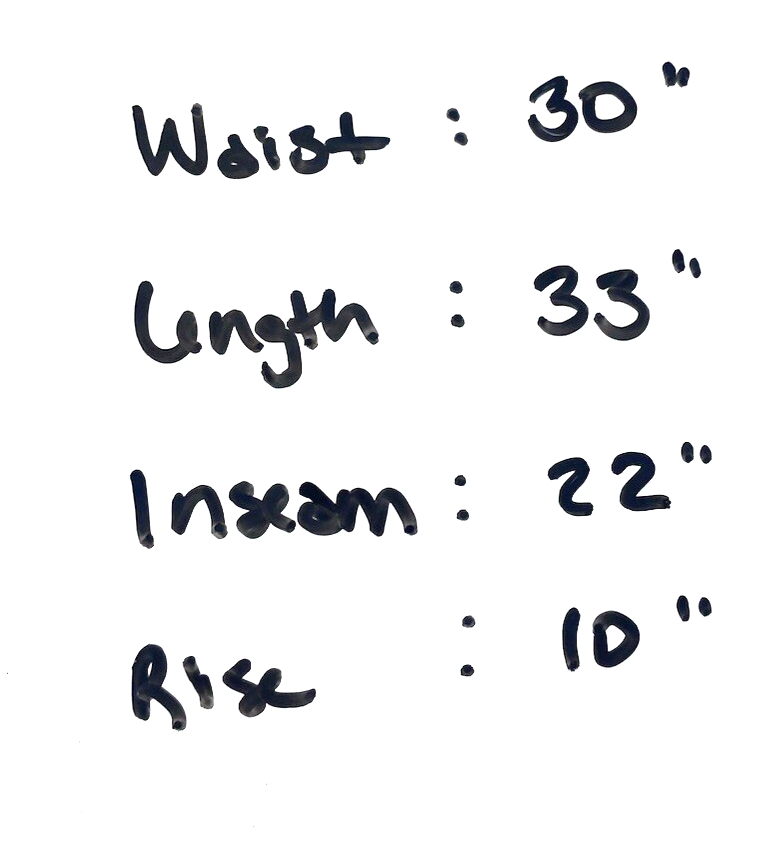 Waist : 30"
Length : 33"
Inseam : 22"
Rise : 10"